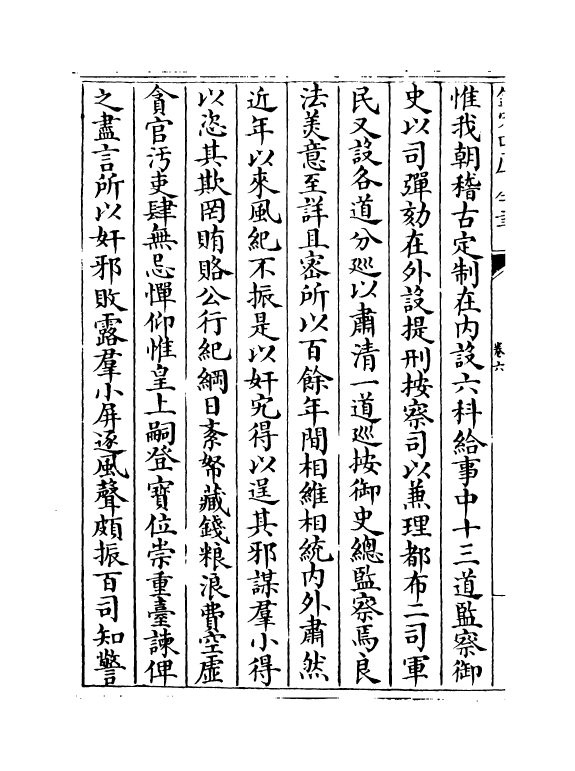 卷六
惟我朝稽古定制在内設六科給事中十三道監察御
史以司彈劾在外設提刑按察司以兼理都布二司軍
民又設各道分巡以肅清一道巡按御史總監察焉良
法美意至詳且密所以百餘年間相維相統内外肅然
近年以來風紀不振是以奸宄得以逞其邪謀羣小得
以恣其欺罔賄賂公行紀綱日紊帑藏錢粮浪費空虚
貪官汚吏肆無忌憚仰惟皇上嗣登寳位崇重臺諫俾
之盡言所以奸邪敗露羣小屏逐風聲頗振百司知警